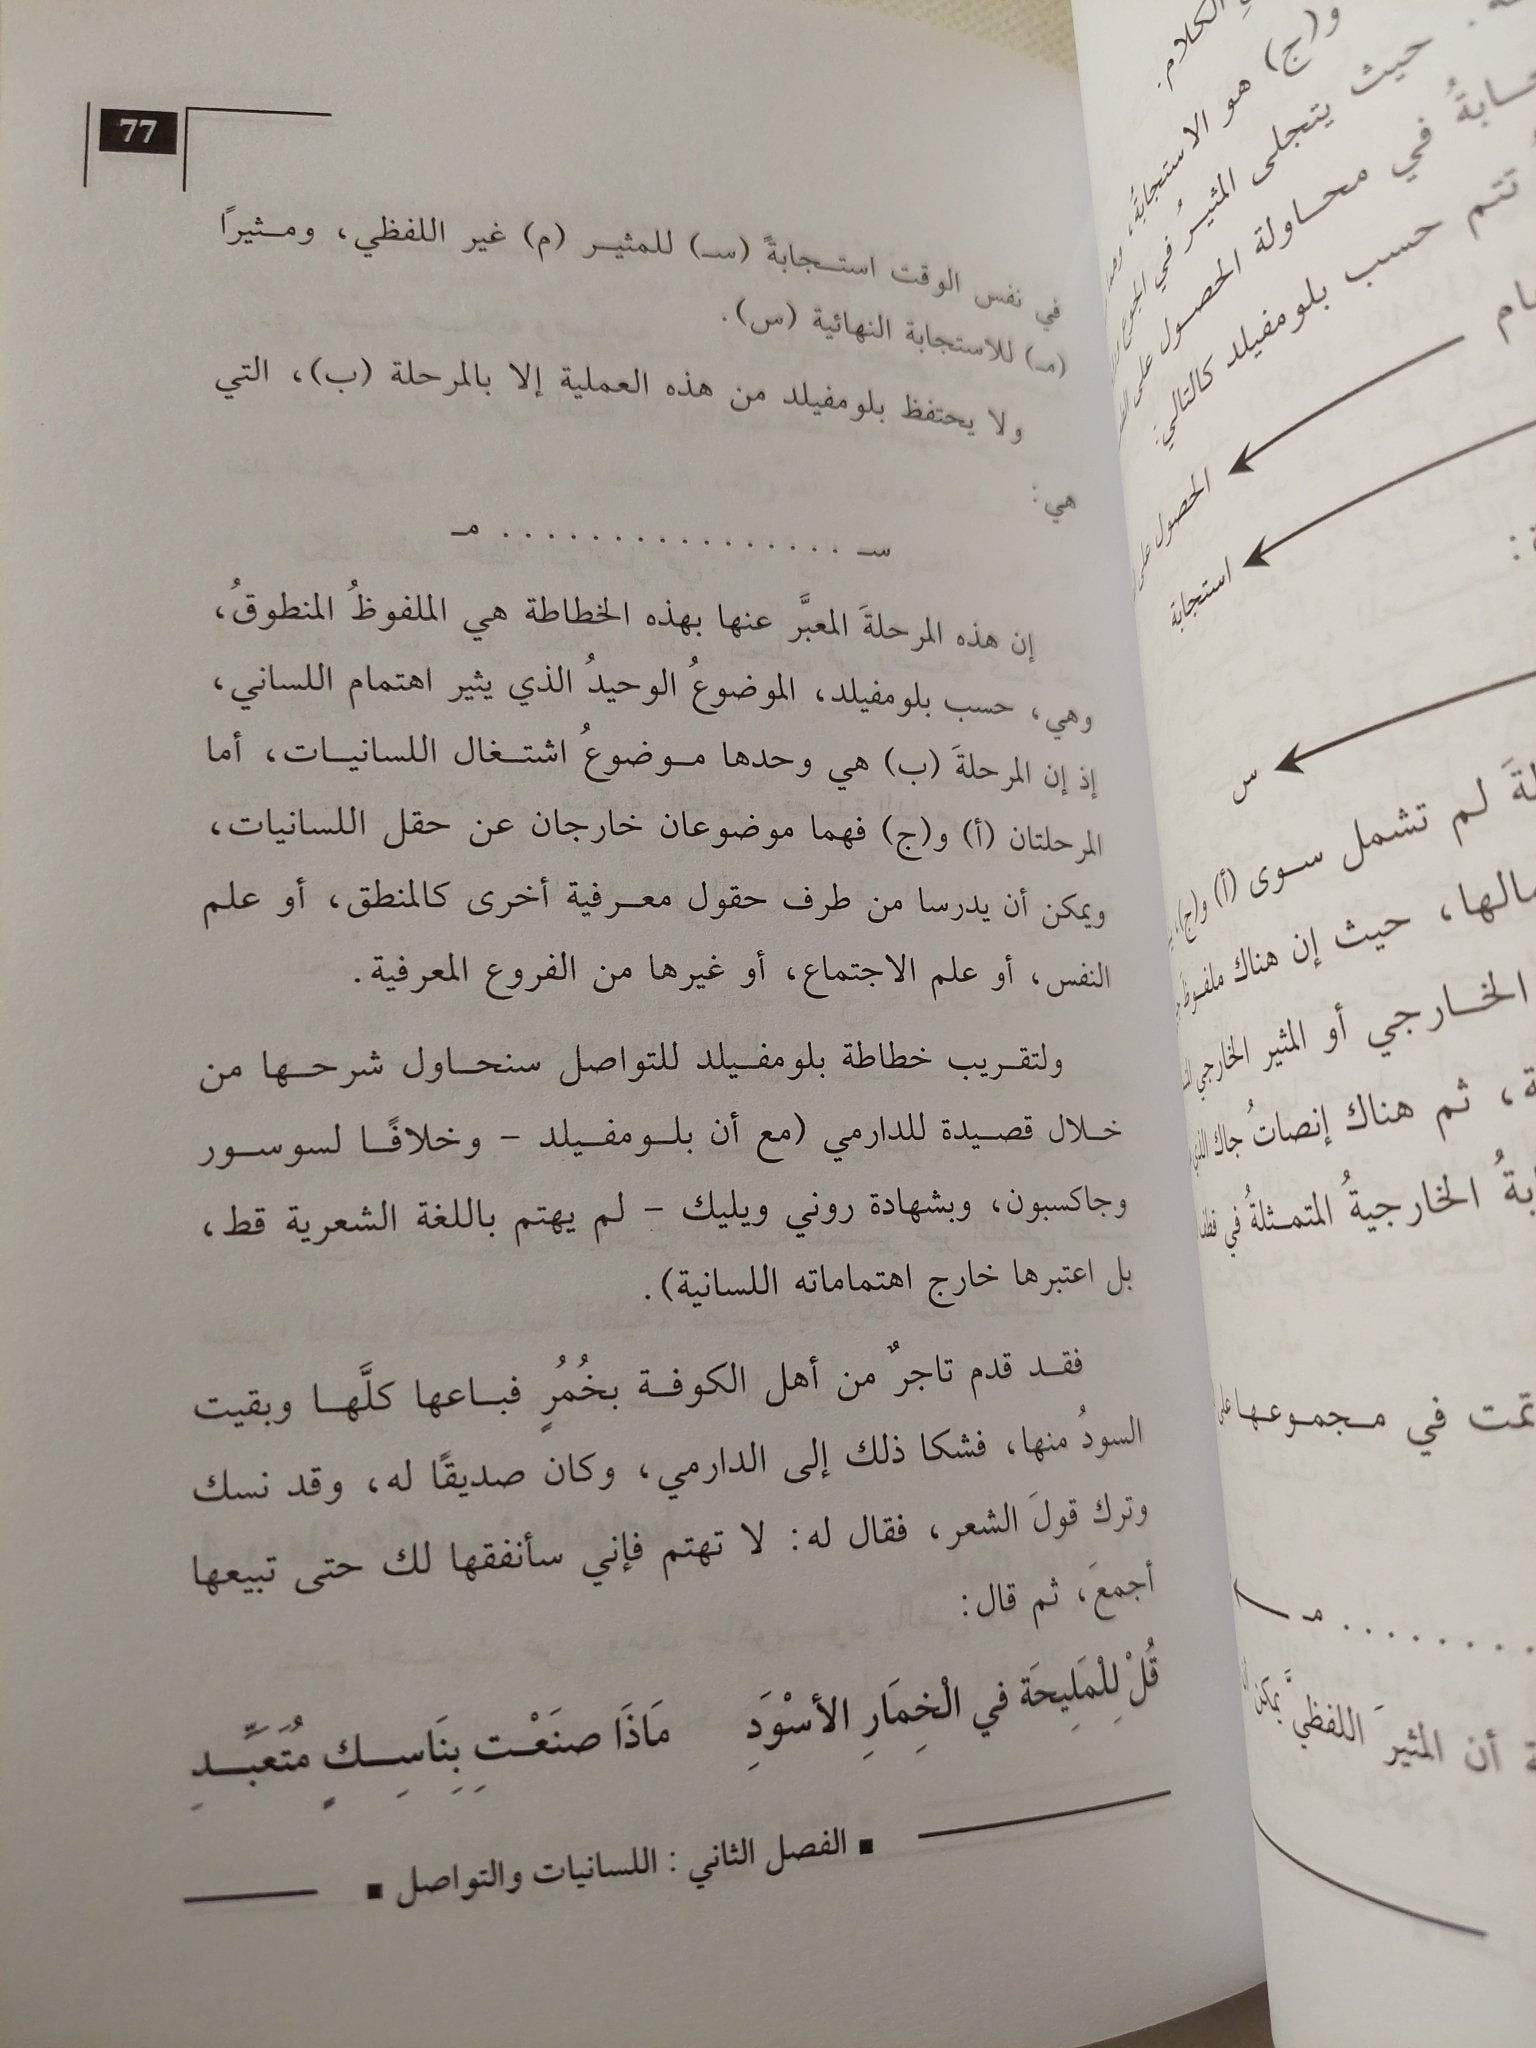 77
في نفس الوقت استجابةً (سـ) للمثير (م) غير اللفظي، ومثيرًا
(مـ) للاستجابة النهائية (س).
ولا يحتفظ بلومفيلد من هذه العملية إلا بالمرحلة (ب)، التي
هي:
سـ . . . . . . . . . . . . . . . . مـ
إن هذه المرحلةَ المعبَّر عنها بهذه الخطاطة هي الملفوظُ المنطوقُ،
وهي، حسب بلومفيلد، الموضوعُ الوحيدُ الذي يثير اهتمام اللساني،
إذ إن المرحلةَ (ب) هي وحدها موضوعُ اشتغال اللسانيات، أما
المرحلتان (أ) و(ج) فهما موضوعان خارجان عن حقل اللسانيات،
ويمكن أن يدرسا من طرف حقول معرفية أخرى كالمنطق، أو علم
النفس، أو علم الاجتماع، أو غيرها من الفروع المعرفية.
ولتقريب خطاطة بلومفيلد للتواصل سنحاول شرحها من
خلال قصيدة للدارمي (مع أن بلومفيلد - وخلافًا لسوسور
وجاكسبون، وبشهادة روني ويليك - لم يهتم باللغة الشعرية قط،
بل اعتبرها خارج اهتماماته اللسانية).
فقد قدم تاجرٌ من أهل الكوفة بخُمُرٍ فباعها كلَّها وبقيت
السودُ منها، فشكا ذلك إلى الدارمي، وكان صديقًا له، وقد نسك
وترك قولَ الشعر، فقال له: لا تهتم فإني سأنفقها لك حتى تبيعها
أجمعَ، ثم قال:
قُلْ لِلْمَلِيحَة في الْخِمَارِ الأسْوَدِ مَاذَا صنَعْتِ بِنَاسِكٍ مُتَعَبِّدِ
■ الفصل الثاني : اللسانيات والتواصل ■
الكلام.
و(ج) هو الاستجابةُ،
حيث يتجلى المثيرُ في الجوع
في محاولة الحصول على
تتم حسب بلومفيلد كالتالي:
الحصول على
استجابة
س
لم تشمل سوى (أ) و(ج)،
حيث إن هناك ملفوظ
الخارجي أو المثير الخارجي
ثم هناك إنصاتُ جاك الذي
الخارجيةُ المتمثلةُ في
تمت في مجموعها على
. . . . . . . . مـ
أن المثيرَ اللفظيَّ يمكن